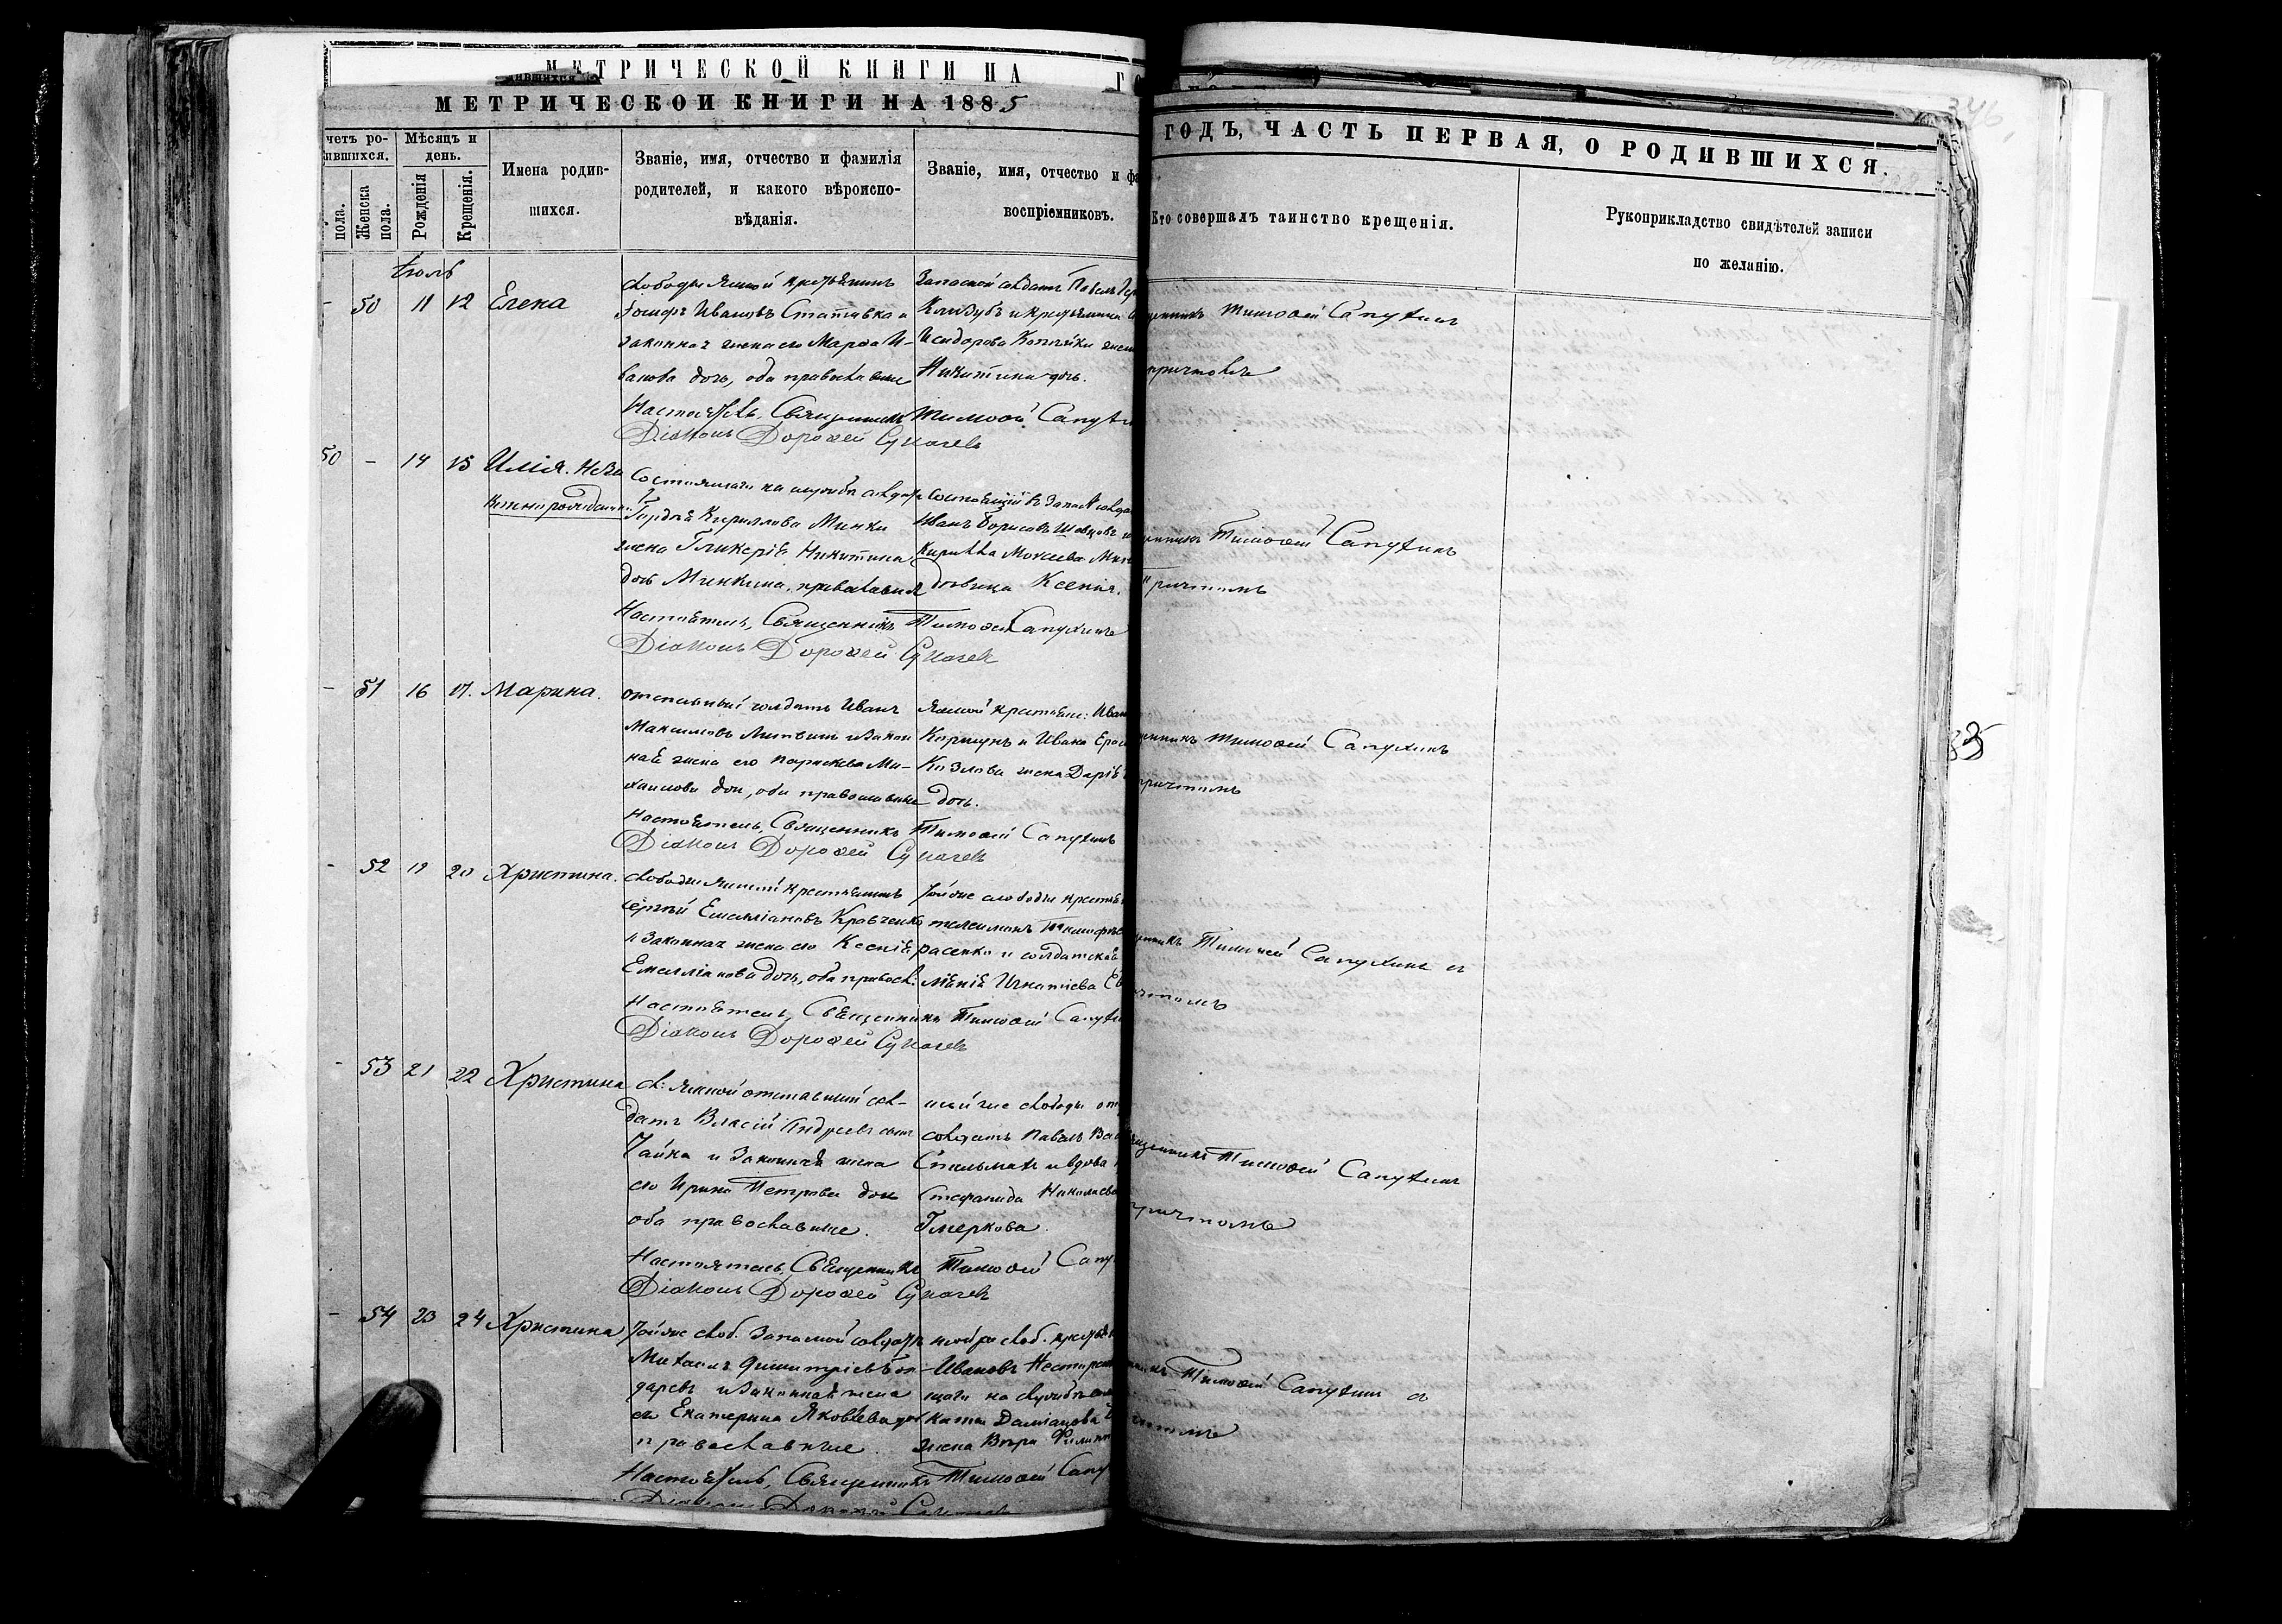 МЕТРИЧЕСКОЙ КНИГИ НА
МЕТРИЧЕСКОЙ КНИГИ НА 1885
ГОДЪ, ЧАСТЬ ПЕРВАЯ, О РОДИВШИХСЯ.
четъ ро-
ившихся.
пола.
Женска
пола.
Мѣсяцъ и
день.
Рожденія
Крещенія.
Имена родив-
шихся.
Званіе, имя, отчество и фамилія
родителей, и какого вѣроиспо-
вѣданія.
Званіе, имя, отчество и фа
воспріемниковъ.
Кто совершалъ таинство крещенія.
Рукоприкладство свидѣтелей записи
по желанію.
Іюль
- 50 11 12 Елена
слободы Ямной крестьянинъ
Іосифъ Ивановъ Статтивка и
законная жена его Марѳа И-
ванова дочь, оба православные
Запасной солдатъ Павелъ
Исидорова жен
Никитина дочь.
Тимоѳей Сапухинъ
причтомъ
Настоятель, Священникъ Тимоѳей Сапухи
Діаконъ Дороѳей Сукачевъ
50 - 14 15 Илія. Неза
коннорожденны
Состоящаго на службѣ солдата
Гордѣя Кириллова Минки
жена Гликерія Никитина
дочь Минкина, православная
Состоящій въ запасѣ солда
Иванъ Борисовъ Шевцовъ и
Кирилла Мокіева Мин
дѣвица Ксенія.
Тимоѳей Сапухинъ
причтомъ
Настоятель, Священникъ Тимоѳей Сапухинъ
Діаконъ Дороѳей Сукачевъ
- 51 16 17. Марина.
отставный солдатъ Иванъ
Максимовъ Литвинъ и закон
ная жена его Параскева Ми-
хаилова дочь, оба православные
Ямной крестьяне: Иван
Коршунъ и Ивана
Козлова жена Дарія
дочь.
Тимоѳей Сапухинъ
причтомъ
Настоятель, Священникъ Тимоѳей Сапухинъ
Діаконъ Дороѳей Сукачевъ
- 52 19 20 Христина.
слободы Ямной крестьянинъ
Сергѣй Емиліановъ Кравченко
и законная жена его Ксенія
Емиліанова дочь, оба правосл:
Той же слободы крестья
расенко и солдатская
Игнатіева
Тимоѳей Сапухинъ съ
причтомъ
Настоятель, Священникъ Тимоѳей Сапухи
Діаконъ Дороѳей Сукачевъ
- 53 21 22 Христина
сл: Ямной отставный сол-
датъ Власій Андреевъ сынъ
Чайка и законная жена
его Ирина Петрова дочь
оба православные.
той же слободы от
солдатъ Павелъ Вас
Стельмахъ и вдова
Стефанида Николаева
Гмеркова.
Тимоѳей Сапухинъ
причтомъ
Настоятель, Священникъ Тимоѳей Сапу
Діаконъ Дороѳей Сукачевъ
- 54 23 24 Христина
Той же слоб. запасной солдатъ
Михаилъ Димитріевъ Бон-
даревъ и законная жена
его Екатерина Яковлева дочь
православные.
той же слоб. крестьян
Ивановъ Нестерен
щаго на службѣ
Даміанова
жена Вѣра Филип
Тимоѳей Сапухинъ съ
причтомъ
Настоятель, Священникъ Тимоѳей Сапу
Діаконъ Дороѳей Сукачевъ